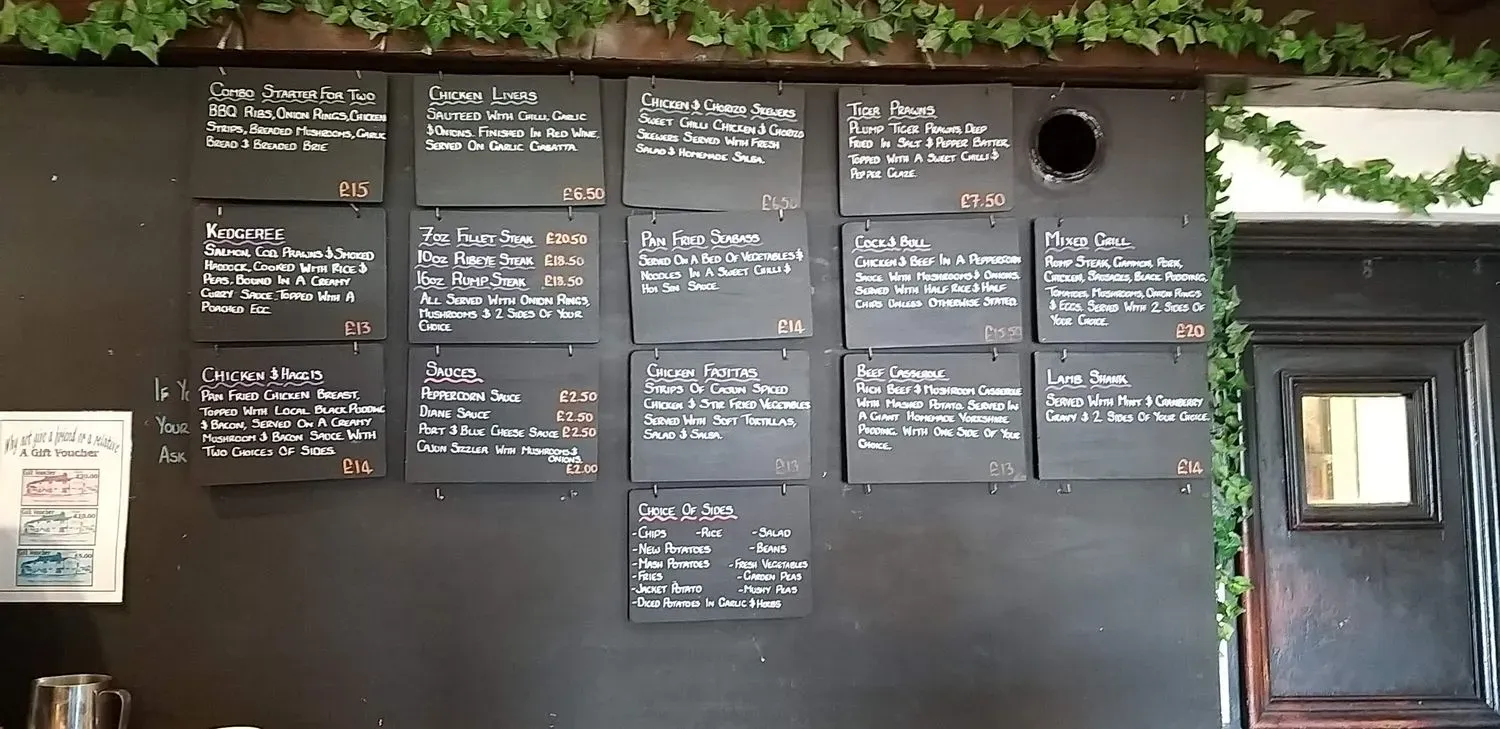 COMBO STARTER FOR TWO
BBQ RIBS, ONION RINGS, CHICKEN
STRIPS, BREADED MUSHROOMS, GARLIC
BREAD & BREADED BRIE
£15
CHICKEN LIVERS
SAUTEED WITH CHILLI, GARLIC
& ONIONS. FINISHED IN RED WINE,
SERVED ON GARLIC CIABATTA.
£6.50
CHICKEN & CHORIZO SKEWERS
SWEET CHILLI CHICKEN & CHORIZO
SKEWERS SERVED WITH FRESH
SALAD & HOMEMADE SALSA.
£6.50
TIGER PRAWNS
PLUMP TIGER PRAWNS, DEEP
FRIED IN SALT & PEPPER BATTER,
TOPPED WITH A SWEET CHILLI &
PEPPER GLAZE.
£7.50
KEDGEREE
SALMON, COD, PRAWNS & SMOKED
HADDOCK, COOKED WITH RICE &
PEAS, BOUND IN A CREAMY
CURRY SAUCE, TOPPED WITH A
POACHED EGG.
£13
7OZ FILLET STEAK £20.50
10OZ RIBEYE STEAK £18.50
16OZ RUMP STEAK £18.50
ALL SERVED WITH ONION RINGS,
MUSHROOMS & 2 SIDES OF YOUR
CHOICE.
PAN FRIED SEABASS
SERVED ON A BED OF VEGETABLES &
NOODLES IN A SWEET CHILLI &
HOI SIN SAUCE.
£14
COCK & BULL
CHICKEN & BEEF IN A PEPPERCORN
SAUCE WITH MUSHROOMS & ONIONS.
SERVED WITH HALF RICE & HALF
CHIPS UNLESS OTHERWISE STATED.
£15.50
MIXED GRILL
RUMP STEAK, GAMMON, PORK,
CHICKEN, SAUSAGES, BLACK PUDDING,
TOMATOES, MUSHROOMS, ONION RINGS
& EGGS. SERVED WITH 2 SIDES OF
YOUR CHOICE.
£20
CHICKEN & HAGGIS
PAN FRIED CHICKEN BREAST,
TOPPED WITH LOCAL BLACK PUDDING
& BACON, SERVED ON A CREAMY
MUSHROOM & BACON SAUCE WITH
TWO CHOICES OF SIDES.
£14
SAUCES
PEPPERCORN SAUCE £2.50
DIANE SAUCE £2.50
PORT & BLUE CHEESE SAUCE £2.50
CAJUN SIZZLER WITH MUSHROOMS &
ONIONS.
£2.00
CHICKEN FAJITAS
STRIPS OF CAJUN SPICED
CHICKEN & STIR FRIED VEGETABLES
SERVED WITH SOFT TORTILLAS,
SALAD & SALSA.
£13
BEEF CASSEROLE
RICH BEEF & MUSHROOM CASSEROLE
WITH MASHED POTATO. SERVED IN
A GIANT HOMEMADE YORKSHIRE
PUDDING. WITH ONE SIDE OF YOUR
CHOICE.
£13
LAMB SHANK
SERVED WITH MINT & CRANBERRY
GRAVY & 2 SIDES OF YOUR CHOICE.
£14
CHOICE OF SIDES
-CHIPS -RICE -SALAD
-NEW POTATOES -BEANS
-MASH POTATOES -FRESH VEGETABLES
-FRIES -GARDEN PEAS
-JACKET POTATO -MUSHY PEAS
-DICED POTATOES IN GARLIC & HERBS
IF
YOUR
ASK
Why not give a friend or a relative
A Gift Voucher
Gift Voucher £20.00
Gift Voucher £10.00
Gift Voucher £5.00